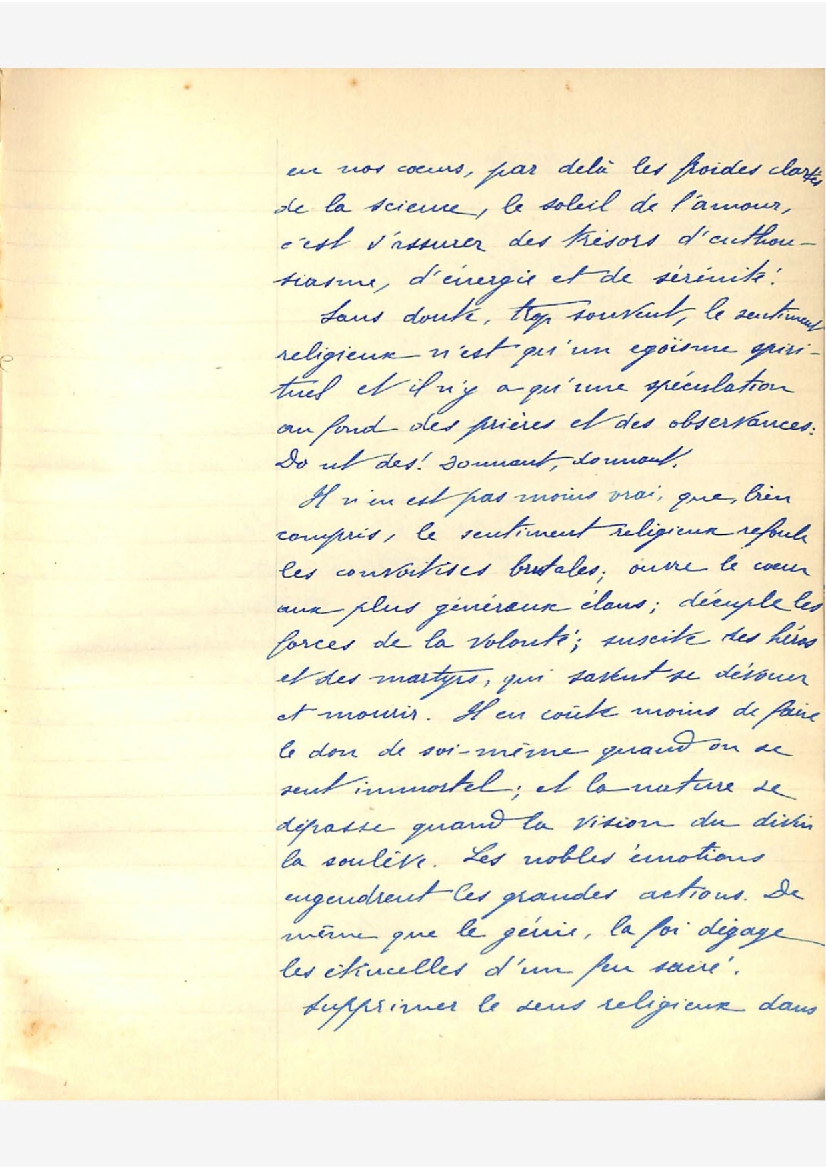 en nos cœurs, par delà les froides clartés
de la science, le soleil de l'amour,
c'est s'assurer des trésors d'enthou-
siasme, d'énergie et de sérénité!
Sans doute, trop souvent, le sentiment
religieux n'est qu'un egoïsme spiri-
tuel et il n'y a qu'une spéculation
au fond des prières et des observances:
Do ut des! Donnant, donnant.
Il n'en est pas moins vrai, que, bien
compris, le sentiment religieux refoule
les convoitises brutales; ouvre le cœur
aux plus généreux élans; décuple les
forces de la volonté; suscite des héros
et des martyrs, qui savent se dévouer
et mourir. Il en coûte moins de faire
le don de soi-même quand on se
sent immortel; et la nature se
dépasse quand la vision du divin
la soulève. Les nobles émotions
engendrent les grandes actions. De
même que le génie, la foi dégage
les étincelles d'un feu sacré.
Supprimer le sens religieux dans